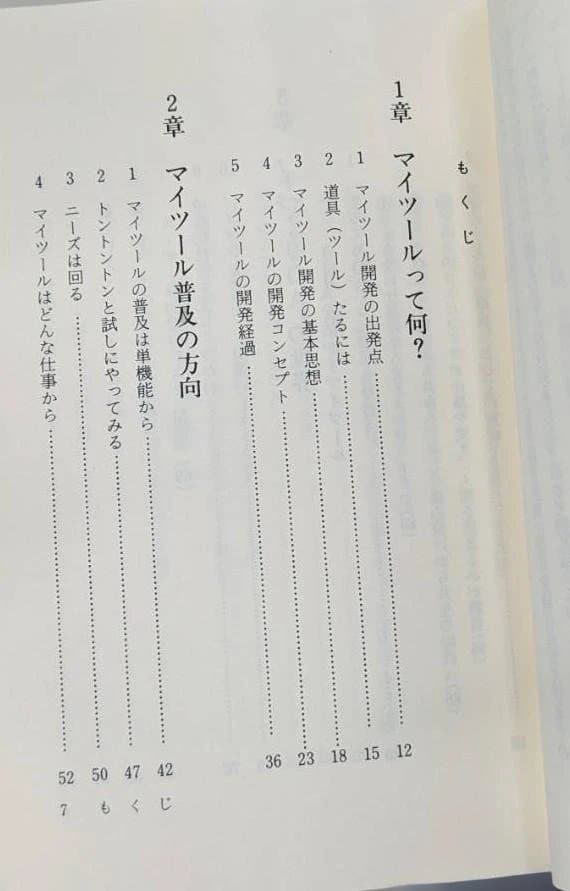 もくじ
1章 マイツールって何？
1 マイツール開発の出発点 12
2 道具（ツール）たるには 15
3 マイツール開発の基本思想 18
4 マイツールの開発コンセプト 23
5 マイツールの開発経過 36
2章 マイツール普及の方向
1 マイツールの普及は単機能から 42
2 トントントンと試しにやってみる 47
3 ニーズは回る 50
4 マイツールはどんな仕事から 52
7 もくじ